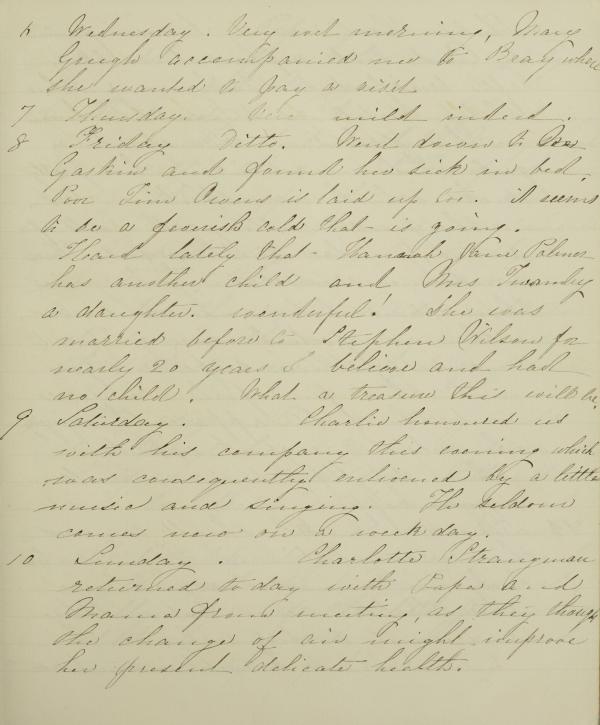 6 Wednesday. Very wet morning, Mary
Gough accompanied me to Bray where
she wanted to pay a visit
7 Thursday. Very mild indeed.
8 Friday Ditto. Went down to
Gaskin and found her sick in bed,
Poor Tim Owens is laid up too. it seems
to be a feverish cold that is going.
Heard lately that Hannah Jane Palmer
has another child and Mrs
a daughter. wonderful! She was
married before to Stephen Wilson for
nearly 20 years I believe and had
no child. What a treasure this will be.
9 Saturday. Charlie honoured us
with his company this evening which
was consequently enlivened by a little
music and singing. He seldom
comes now on a week day.
10 Sunday. Charlotte Strangman
returned today with Papa and
Mama from meeting, as they though
the change of air might improve
her present delicate health.